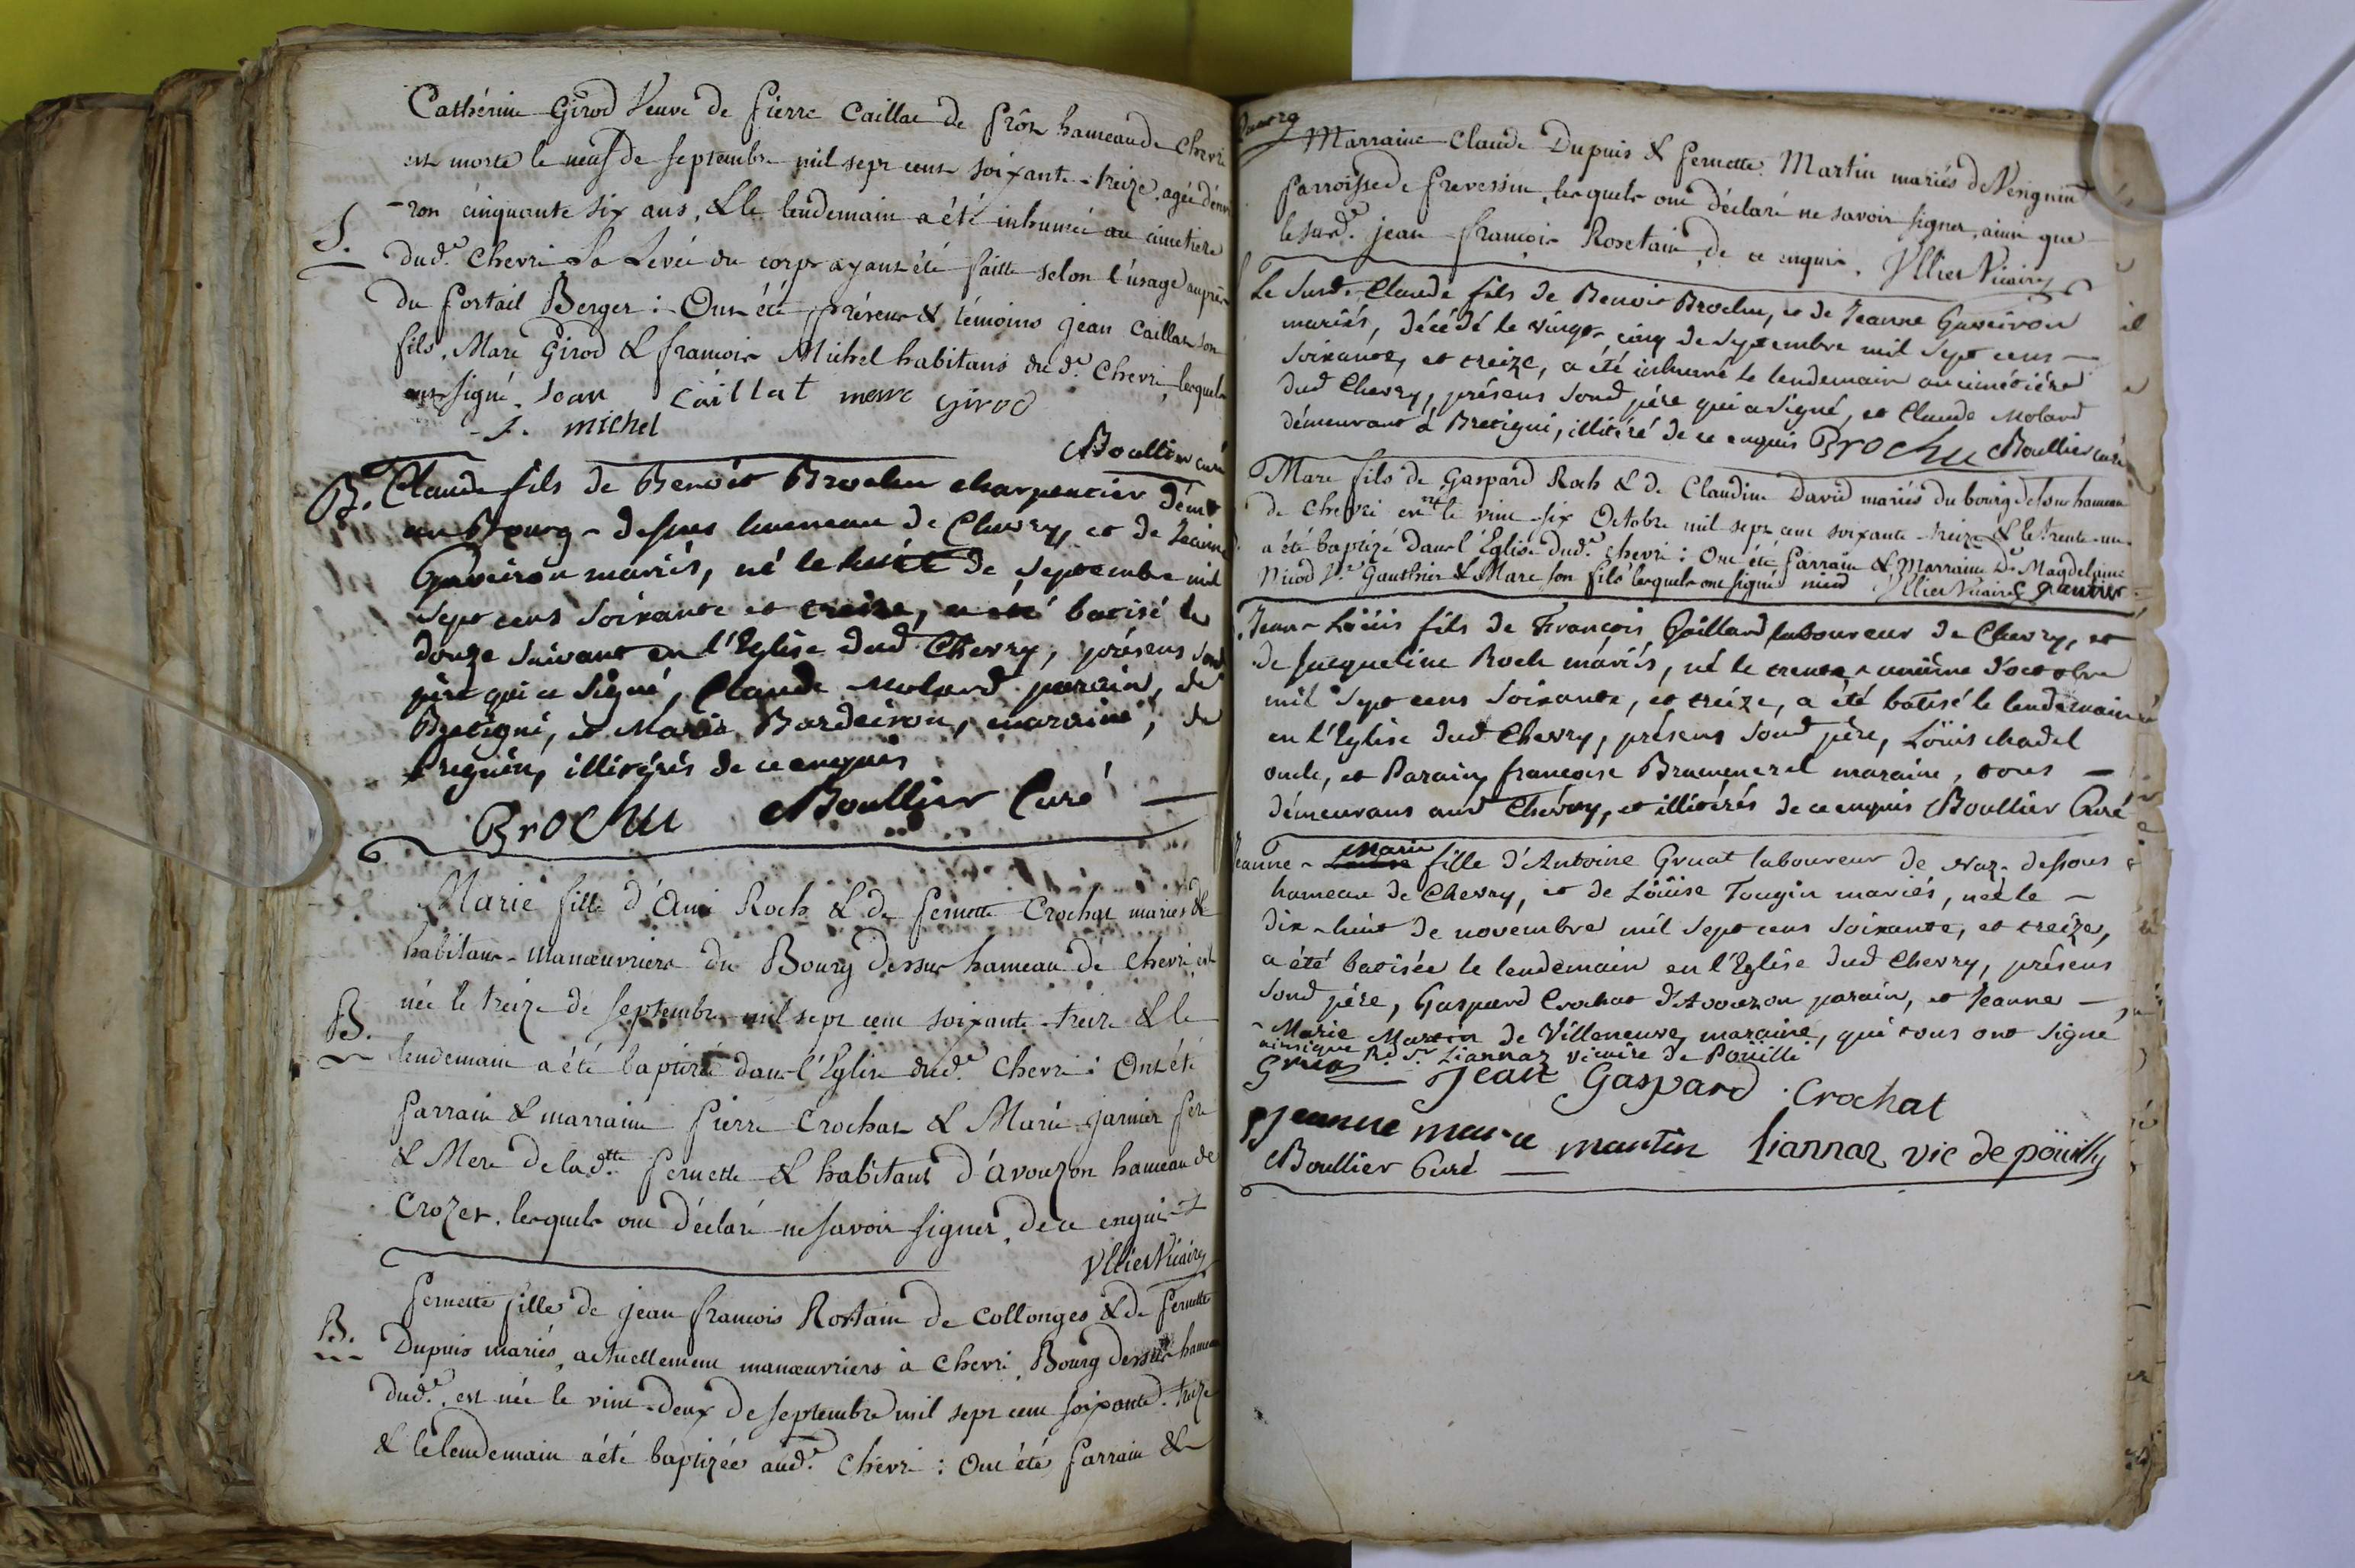 Cathérine Girod Veuve de Pierre Caillat de frõn hameau de Chevri
est morte le neuf de septembre mil sept cent soixante-treize, agée d'envi
-ron cinquante six ans, & le lendemain a été inhumée au cimetiere
S.
dud.e Chevri La Levée du corps ayant été faitte selon l'usage auprès
du Portail Berger : Ont été présens & témoins jean Caillat son
fils, Marc Girod & francois Michel habitans dud.e Chevri, lesquels
ont signé. Jean Caillat marc girod
f. michel
Boullier curé
B. Claude fils de Benoit Brochu charpentier démt
au Bourg-dessus hameau de Chevry, et de Jeanne
Gaveiron mariés, né le huit de septembre mil
sept cens soixante et treize, a été batisé le
douze suivant en l'Eglise dud Chevry, présens sond
père qui a signé, Claude Molard parain, de
Bretigni, et Maria Bardeiron, maraine, de
Pregnin, illitérés de ce enquis
Brochu Boullier Curé
Marie fille d'Ami Roch & de Pernette Crochat mariés &
habitans-manœuvriers du Bourg dessus hameau de Chevri est
née le treize de septembre mil sept cent soixante-treize & le
B.
lendemain a été baptizée dans l'Eglise dud.e Chevri : Ont été
Parrain & marraine Pierre Crochat & Marie garnier Pere
& Mere de lad.tte Pernette & habitans d'avouzon hameau de
Crozet, lesquels ont déclaré ne savoir signer, de ce enquis
Ullier Vicaire
Pernette fille de jean francois Rostain de Collonges & de Pernette
B.
Dupuis mariés, actuellement manœuvriers à Chevri, Bourg dessus hameau
dud.e, est née le vint-deux de septembre mil sept cent soixante-treize
& le lendemain a été baptizée aud.e Chevri : Ont été Parrain &
Marraine Claude Dupuis & Pernette Martin mariés de Vesignin
Parroisse de Prevessin, lesquels ont déclaré ne savoir signer, ainsi que
le sud.e jean francois Rosetain, de ce enquis. Ullier Vicaire
Le Susd. Claude fils de Benoit Brochu, et de Jeanne Gaveiron
mariés, décédé le vingt-cinq de septembre mil sept cens
soixante, et treize, a été inhumé le lendemain au cimétiére
dud Chevry, présens sond père qui a signé, et Claude Molard
démeurant à Bretigni, illitéré de ce enquis Brochu Boullier curé
Marc fils de Gaspard Roch & de Claudine David mariés du bourg dessus hameau
de Chevri est né le vint-six Octobre mil sept cent soixante-treize & le trente-un
a été baptizé dans l'Eglise dud.e Chevri : Ont été Parrain & Marraine D.e Magdelaine
Nicod V.e Gauthier & Marc son fils lesquels ont signés nicod Ullier Vicaire gautier
Jean-Loüis fils de François Gaillard laboureur de Chevry, et
de Jacqueline Roch mariés, né le trente-unième d'octobre
mil sept cens soixante, et treize, a été batisé le lendemain
en l'Eglise dud Chevry, présens sond père, Loüis chadel
oncle, et Parain, françoise maraine, tous
démeurans aud Chevry, et illitérés de ce enquis Boullier Curé
Jeanne-Marie fille d'Antoine Gruat laboureur de Naz-dessous
hameau de Chevry, et de Loüise Tougin mariés, née le
dix-huit de novembre mil sept cens soixante, et treize,
a été batisée le lendemain en l'Eglise dud Chevry, présens
sond père, Gaspard Crochat d'Avouzon parain, et Jeanne
-Marie Martin de Villeneuve, maraine, qui tous ont signé
ainsi que Rd Sr Liannaz vicaire de Poüilli
Gruas Jean Gaspard Crochat
jeanne marie martin Liannaz vic de poüilly
Boullier Curé